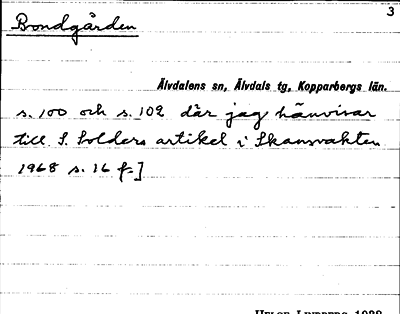 3
Bondgården
Älvdalens sn, Älvdals tg, Kopparbergs län.
s. 100 och s. 102 där jag hänvisar
till S. Solders artikel i Skansvakten
1968 s. 16 f.]